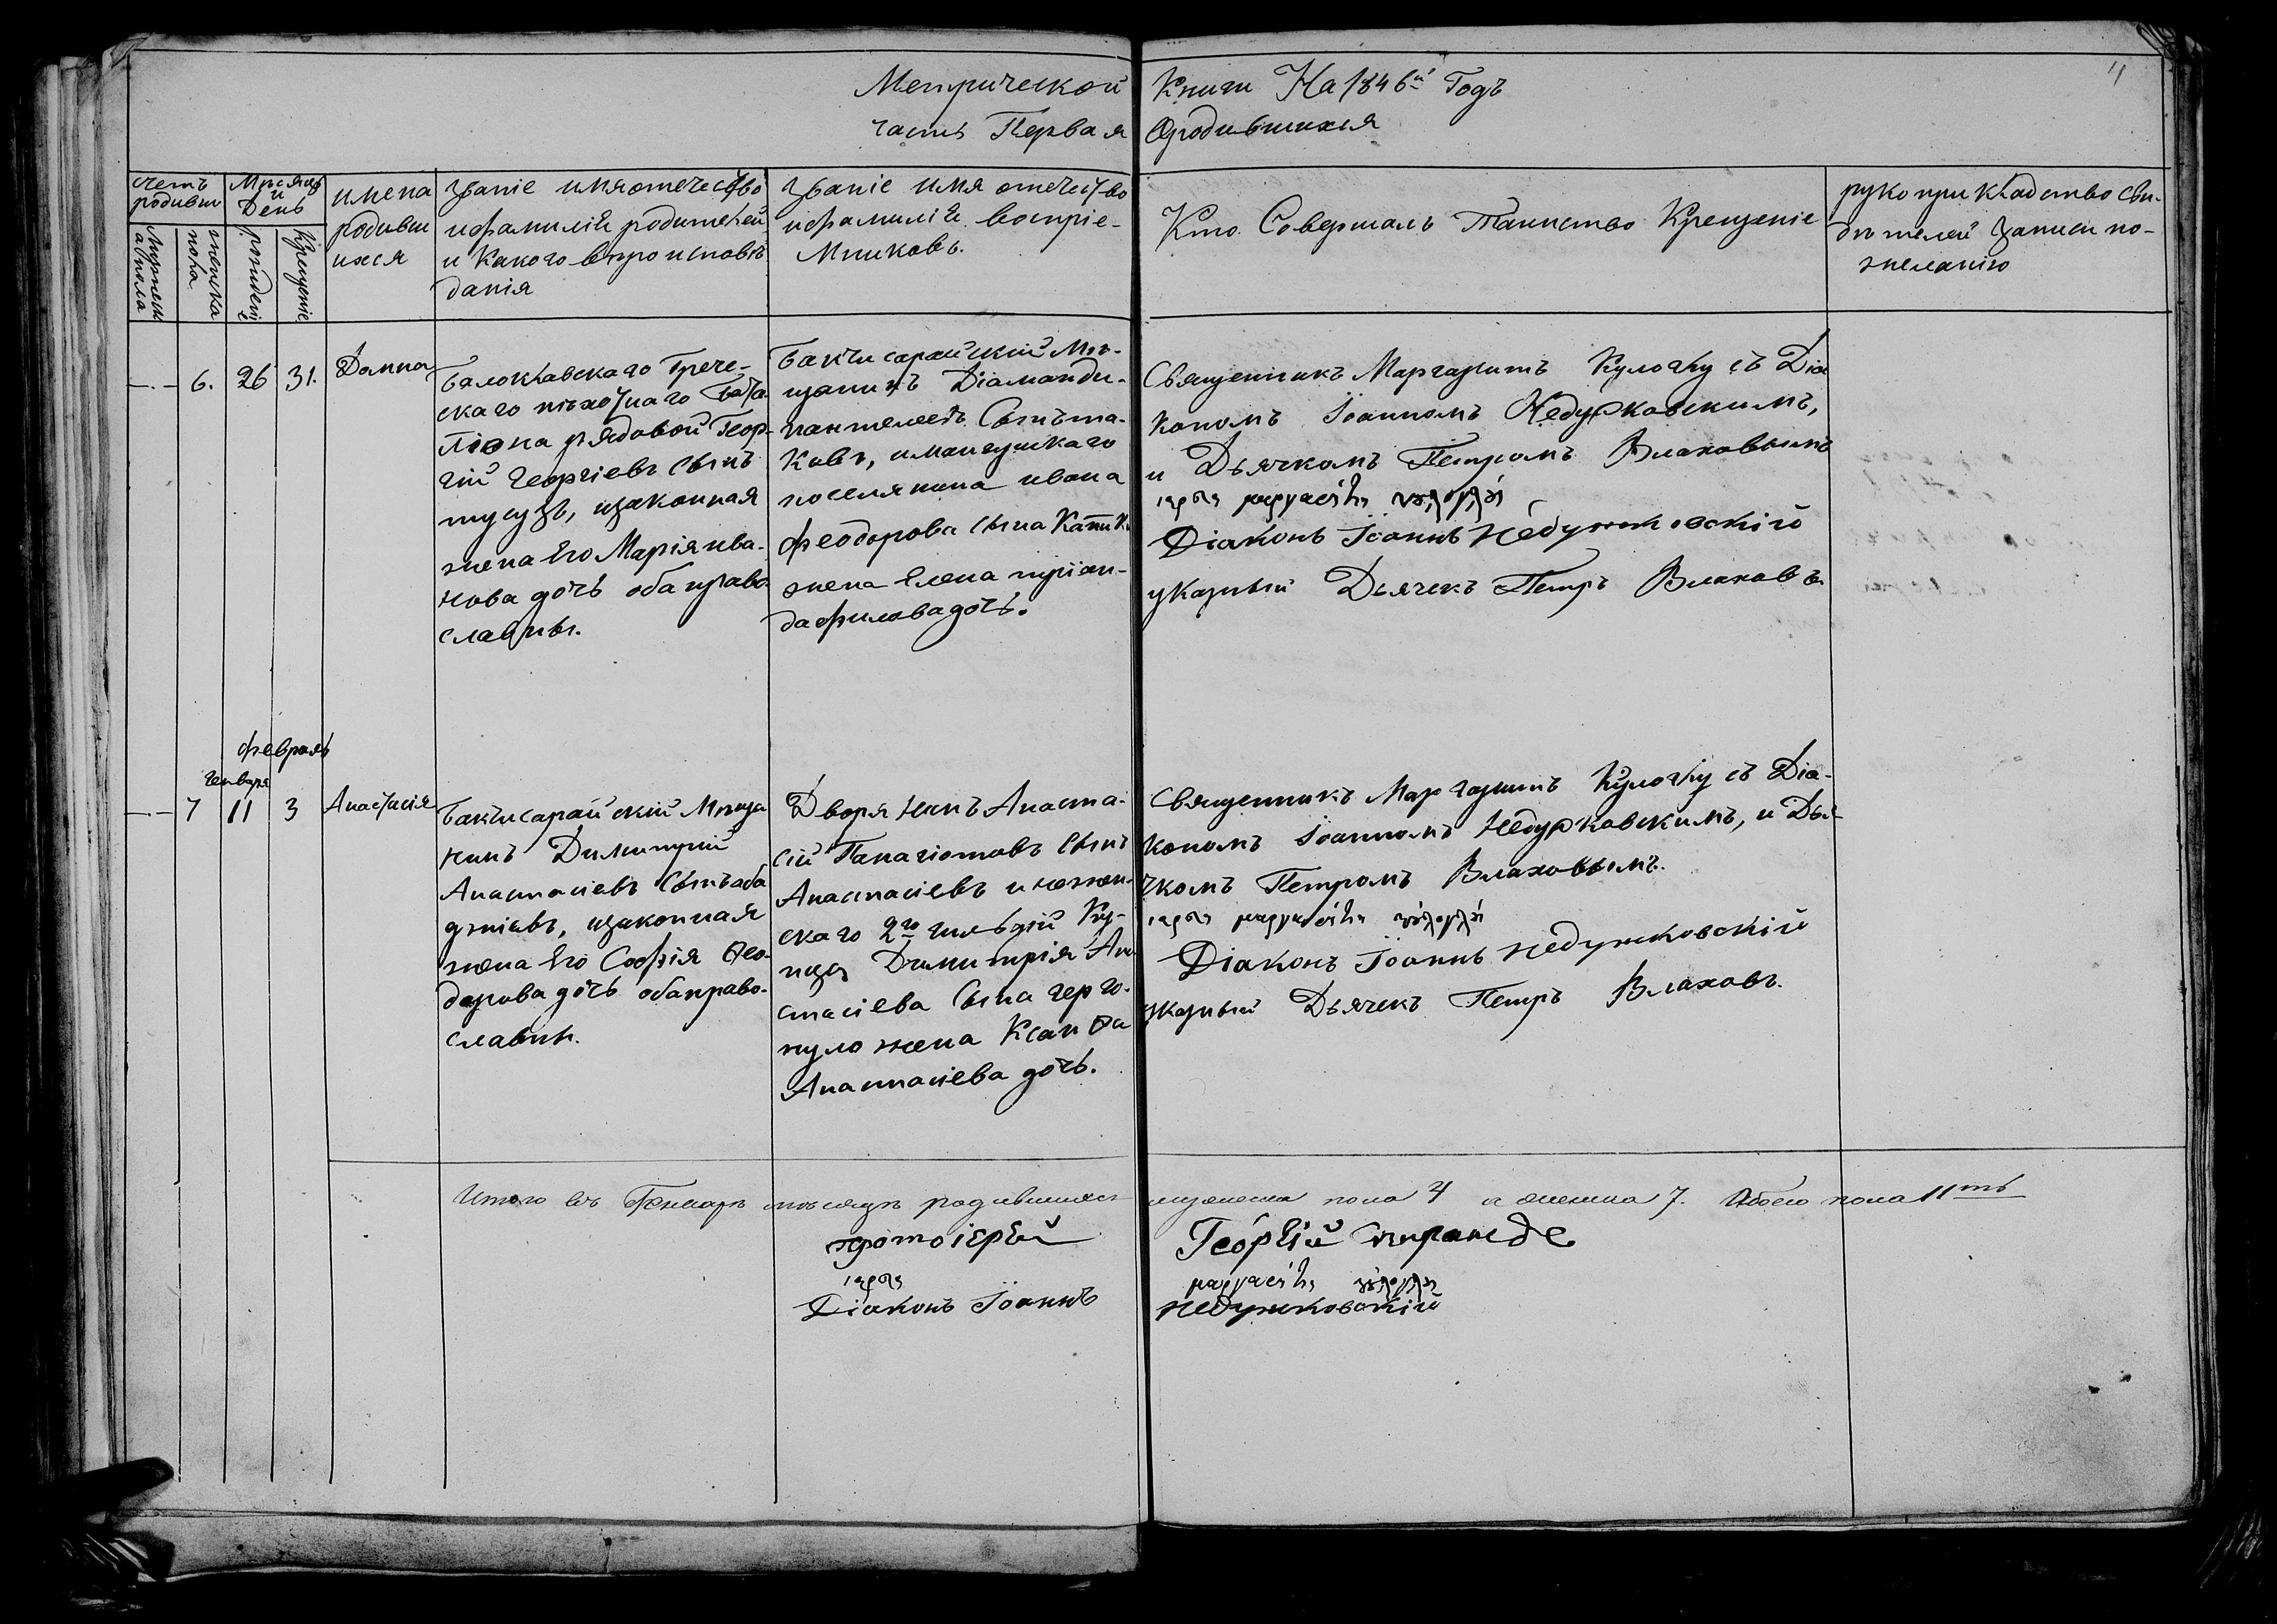 Метрической Книги На 1846й Годъ
часть Первая О родившихся
4
счетъ родивш
Мужеска пола
женска пола
Мѣсяцъ и День
рожденіе
Крещеніе
имена
родивши
ихся
Званіе имя отечество
и фамилія родителей
и Какого вѣроисповѣ
данія
Званіе имя отечество
и фамилія воспріе-
мниковъ.
Кто Совершалъ Таинство Крещеніе
рукоприкладство сви-
дѣтелей записи по-
желанію
6. 26 31. Домна
Балоклавскаго Грече-
скаго пѣхотнаго Бата
ліона рядовой Геор-
гій Георгіевъ Сынъ
изаконная
жена Его Марія ива-
нова дочь оба право
славны.
Бакчисарайскій Мѣ-
щанинъ Діаманди-
пантелеевъ Сынъ
поселянина ивана
феодорова Сына
жена Елена тріан-
дафилова дочь.
Священникъ Маргаритъ Кулогλу съ Діа
кономъ Іоанномъ Недужковскимъ,
и Дьячкомъ Петромъ Влаховымъ
Діаконъ Іоаннъ Недужковскій
указный Дьячекъ Петръ Влаховъ
февраль
Генваря
7 11 3 Анастасія
Бакчисарайскій Мѣща
нинъ Димитрій
Анастасіевъ Сынъ аба
джіевъ, изаконная
жена Его Софія Ѳео-
дорова дочь оба право-
славны.
Дворянинъ Анаста-
сій Панагіотовъ Сынъ
Анастасіевъ и нежин-
скаго 2й гильдій Ку-
пца Димитрія Ана
стасіева Сына черго-
пуло жена Ксанѳа
Анастасіева дочь.
Священникъ Маргаритъ Кулогλу съ Діа-
кономъ Іоанномъ Недужковскимъ, и Дья-
чкомъ Петромъ Влаховымъ.
Діаконъ Іоаннъ Недужковскій
указный Дьячекъ Петръ Влаховъ.
Итого въ Генварѣ мѣсяцѣ родившихся мужеска пола 4 а женска 7. Обоего пола 11ть
протоіерей Георгій Спиранде
Діаконъ Іоаннъ Недужковскій